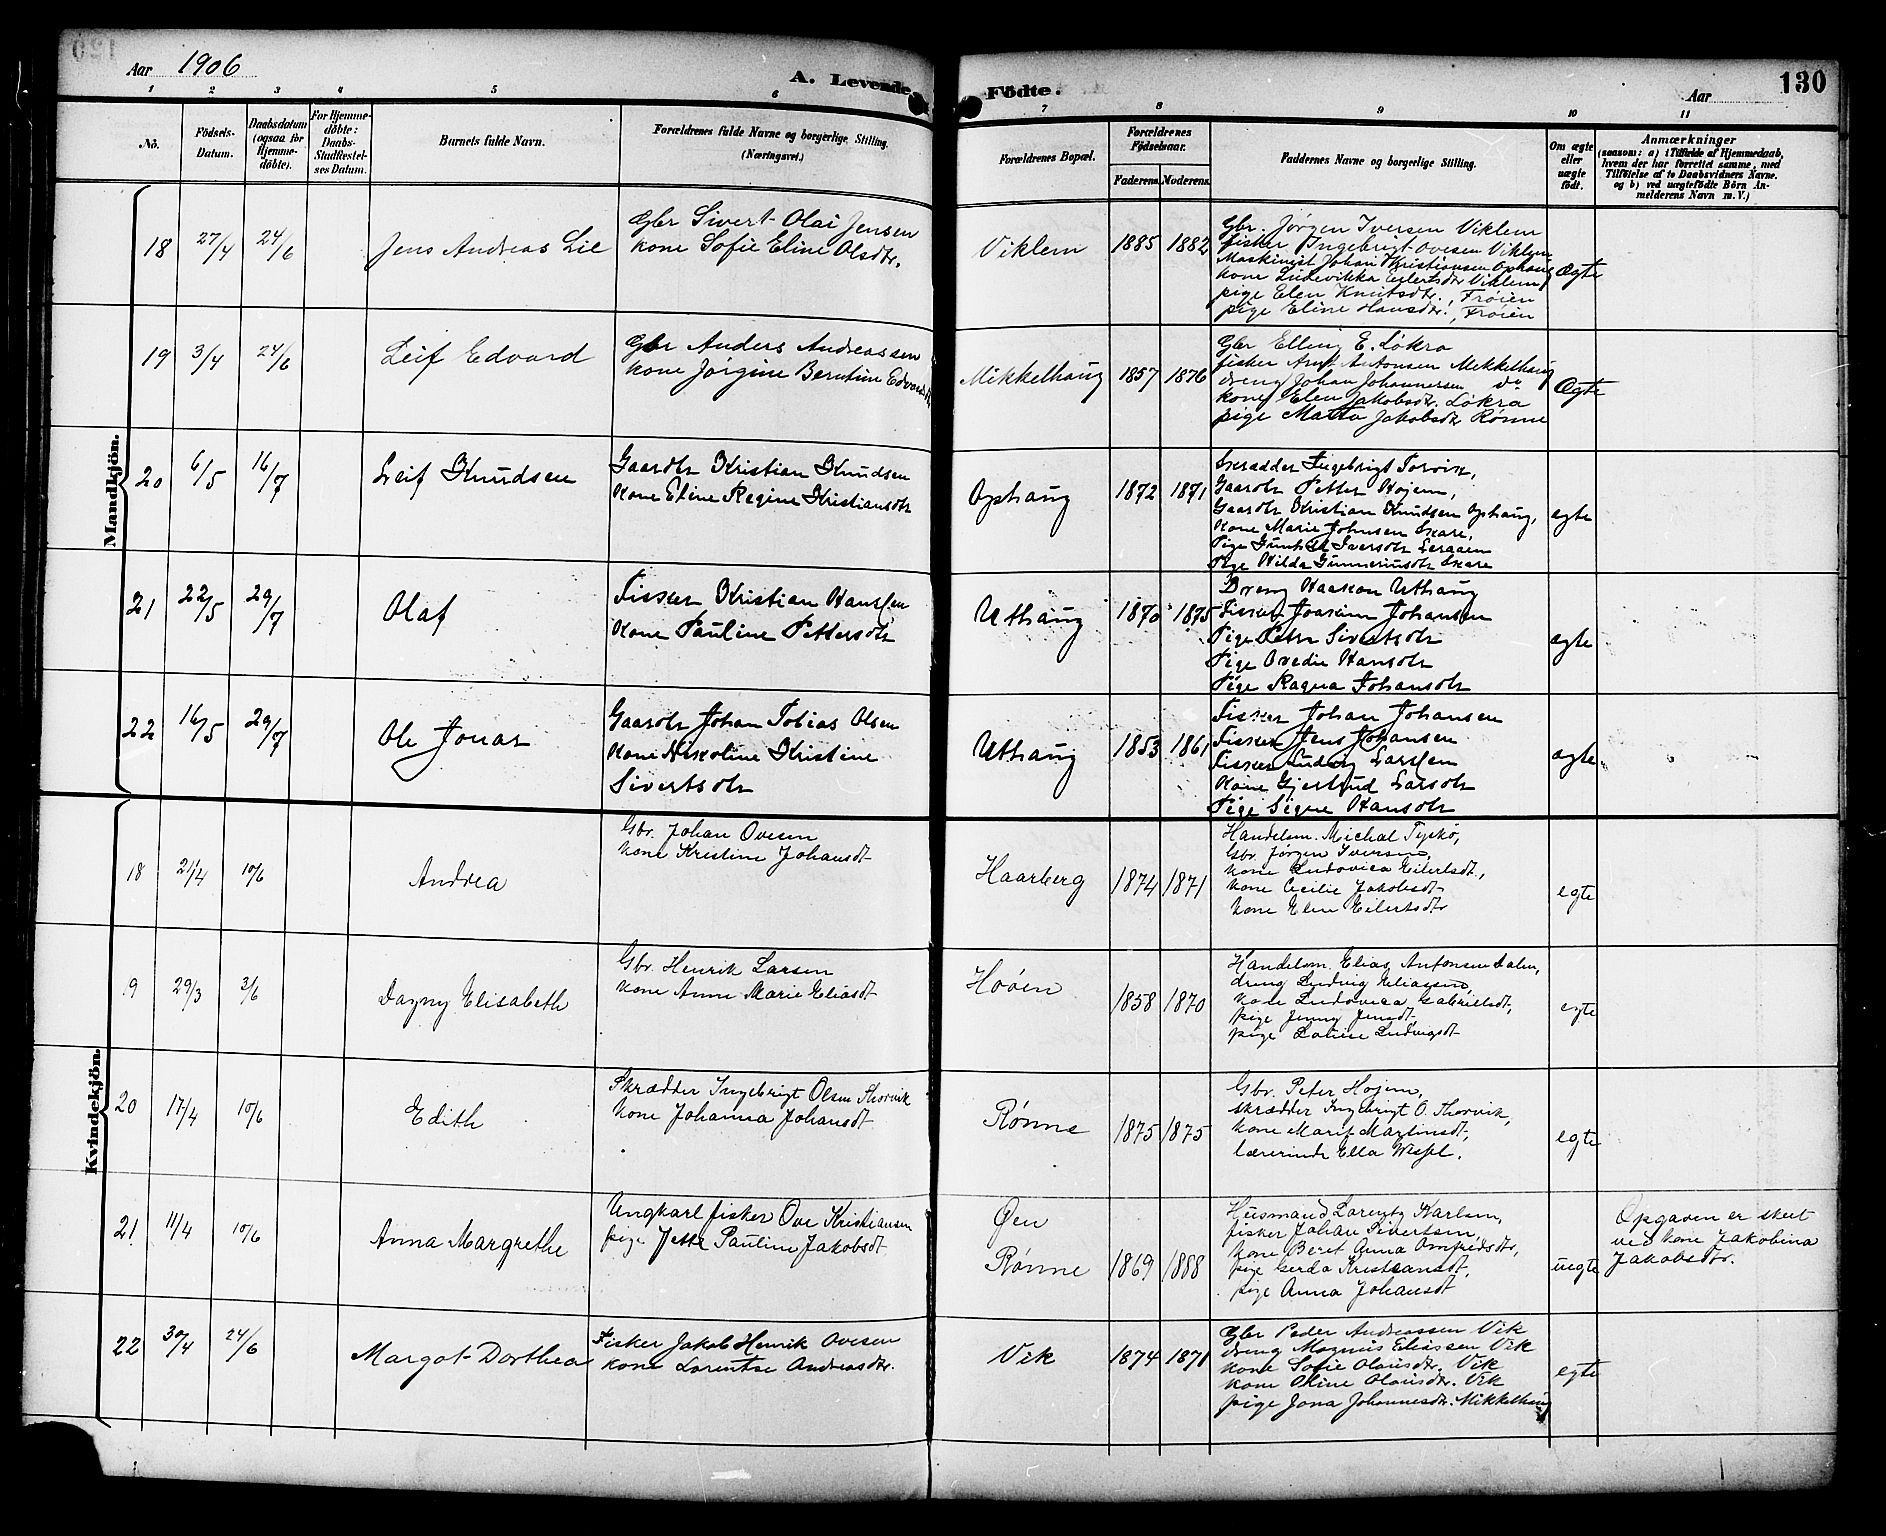 Aar 1906
A. Levende Födte.
Aar
130
1 2 3 4 5 6 7 8 9 10 11
No.
Födsels-Datum.
Daabsdatum (ogsaa for Hjemme-döbte).
For Hjemme-döbte: Daabs-Stadfæstel-ses Datum.
Barnets fulde Navn.
Forældrenes fulde Navne og borgerlige Stilling.
(Næringsvei.)
Forældrenes Bopæl.
Forældrenes Födselsaar.
Faderens. Moderens.
Faddernes Navne og borgerlige Stilling.
Om ægte eller uægte født.
Anmærkninger
(saasom: a) i Tilfælde af Hjemmedaab,
hvem der har forrettet samme, med
Tilföielse af to Daabsvidners Navne.
og b) ved uægtefödte Börn An-
melderens Navn m. V.)
Mandkjön.
18 27/4 24/6 Jens Andreas Lie
Gbr Sivert Olai Jensen
kone Sofie Eline Olsdtr.
Viklem 1885 1882
Gbr. Jørgen Iversen Viklem
fisker Ingebrigt Ovesen Viklem
Maskinist Johan Kristiansen Ophaug
kone Ludevikka Eilertsdtr Viklem
pige Elen Knutsdtr., Frøien
pige Eline Hansdtr., Frøien
Ægte
19 3/4 24/6 Leif Edvard
Gbr Anders Andreassen
kone Jørgine Berntine
Mikkelhaug 1857 1876
Gbr Elling E. Løkra
fisker Antonsen Mekkelhaug
dreng Johan Johannersen do
kone Elen Jakobsdtr. Løkra
pige Matta Jakobsdtr Rønne
Ægte
20 6/5 16/7 Leif Knudsen
Gaardbr Kristian Knudsen
Kone Eline Regine Kristiansdtr
Ophaug 1872 1871
Skrædder Ingebrigt Torvik,
Gaardbr Petter Hojem,
Gaardbr Kristian Knudsen Ophaug,
Kone Marie Johnsen Skare,
Pige Iversdtr
Pige Hilda Gunneriusdtr Skare
ægte
21 22/5 29/7 Olaf
Fisker Kristian Hansen
Kone Pauline Pettersdtr
Uthaug 1870 1875
Dreng Haakon Uthaug
Fisker Joakim Johansen
Pige Petra Sivertsdtr
Pige Ovedie Hansdtr
Pige Ragna Johansdtr
ægte
22 16/5 29/7 Ole Jonas
Gaardbr Johan Tobias Olsen
Kone Nikoline Kristine
Sivertsdtr
Uthaug 1853 1861
Fisker Johan Johansen
Fisker Jens Johansen
Fisker Ludvig Larsen
Kone Gjertrud Larsdtr
Pige Signe Hansdtr
ægte
Kvindekjön.
18 21/4 10/6 Andrea
Gbr. Johan Ovesen
kone Kristine Johansdt
Haarberg 1874 1871
Handelsm. Michal Tyskø,
Gbr. Jørgen Iversen,
kone Ludovica Eilertsdt,
kone Cecilie Jakobsdt
kone Elen Eilertsdtr
egte
9 29/3 3/6 Dagny Elisabeth
Gbr. Henrik Larsen
kone Anne Marie Eliasdt
Hoøen 1858 1870
Handelsm. Elias Antonsen Dalen,
dreng Ludvig Eliassen,
kone Ludovica Gabrielsdt,
pige Jenny Jensdt,
pige Ludvigsdt
egte
20 17/4 10/6 Edith
Skrædder Ingebrigt Olsen Thorvik
kone Johanna Johansdt
Rønne 1875 1875
Gbr. Peter Hojem,
skrædder Ingebrigt O. Thorvik,
kone Marit Martinsdt,
lærerinde Ella Wessel.
egte
21 11/4 10/6 Anna Margrethe
Ungkarl fisker Ove Kristiansen
pige Jette Pauline Jakobsdt
Øen
Rønne 1869 1888
Husmand Lorentz Karlsen,
fisker Johan Sivertsen,
kone Beret Anna Arnfredsdtr,
pige Gerda Kristiansdt,
pige Anna Johansdt
uegte
Opgaven er skeet
ved kone Jakobina
Jakobsdtr.
22 30/4 24/6 Margot Dorthea
Fisker Jakob Henrik Ovesen
kone Lorentse Andreasdtr.
Vik 1874 1871
Gbr Peder Andreassen Vik
dreng Magnus Eliassen Vik
kone Sofie Olausdtr. Vik
kone Oline Olausdtr. Vik
pige Jona Johannesdtr. Mikkelhaug
egte